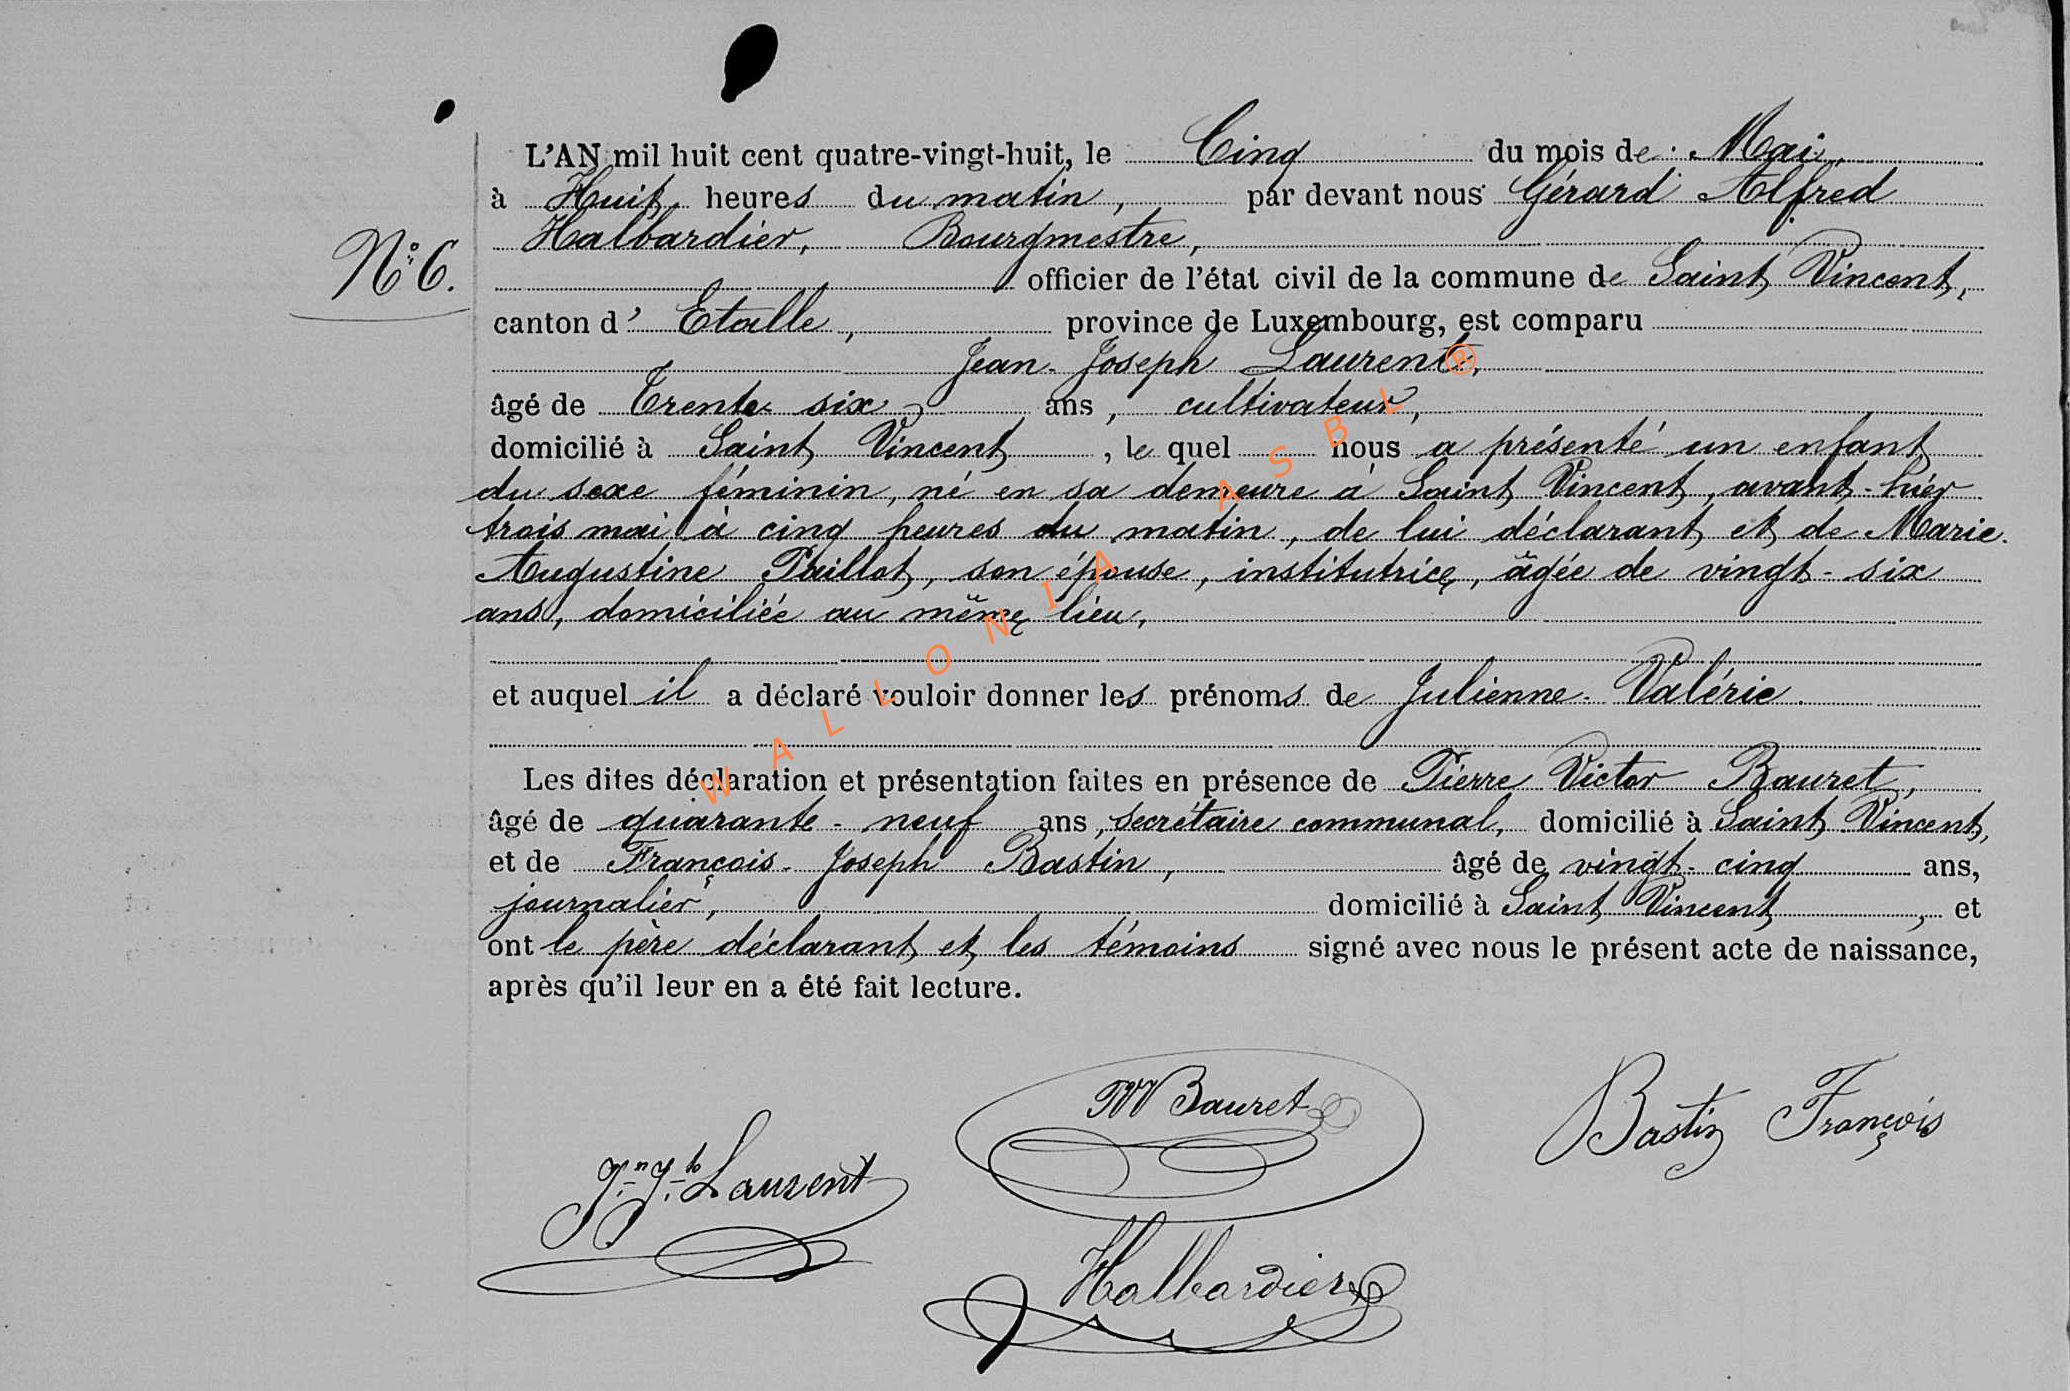 L'AN mil huit cent quatre-vingt-huit, le Cinq du mois de Mai,
à Huit heures du matin, par devant nous Gérard Alfred
Halbardier, Bourgmestre,
N° 6.
officier de l'état civil de la commune de Saint Vincent,
canton d' Etalle, province de Luxembourg, est comparu
Jean-Joseph Laurent,
âgé de Trente six ans, cultivateur,
domicilié à Saint Vincent, le quel nous a présenté un enfant
du sexe féminin, né en sa demeure à Saint Vincent, avant-hier
trois mai à cinq heures du matin, de lui déclarant et de Marie-
Augustine Paillot, son épouse, institutrice, âgée de vingt-six
ans, domiciliée au même lieu,
et auquel il a déclaré vouloir donner les prénoms de Julienne-Valérie.
Les dites déclaration et présentation faites en présence de Pierre Victor Bauret,
âgé de quarante-neuf ans, secrétaire communal, domicilié à Saint Vincent,
et de François-Joseph Bastin, âgé de vingt-cinq ans,
journalier, domicilié à Saint Vincent, et
ont le père déclarant et les témoins signé avec nous le présent acte de naissance,
après qu'il leur en a été fait lecture.
PV Bauret
Bastin François
Jn. Jh. Laurent
Halbardier
WALLONIA ASBL ®